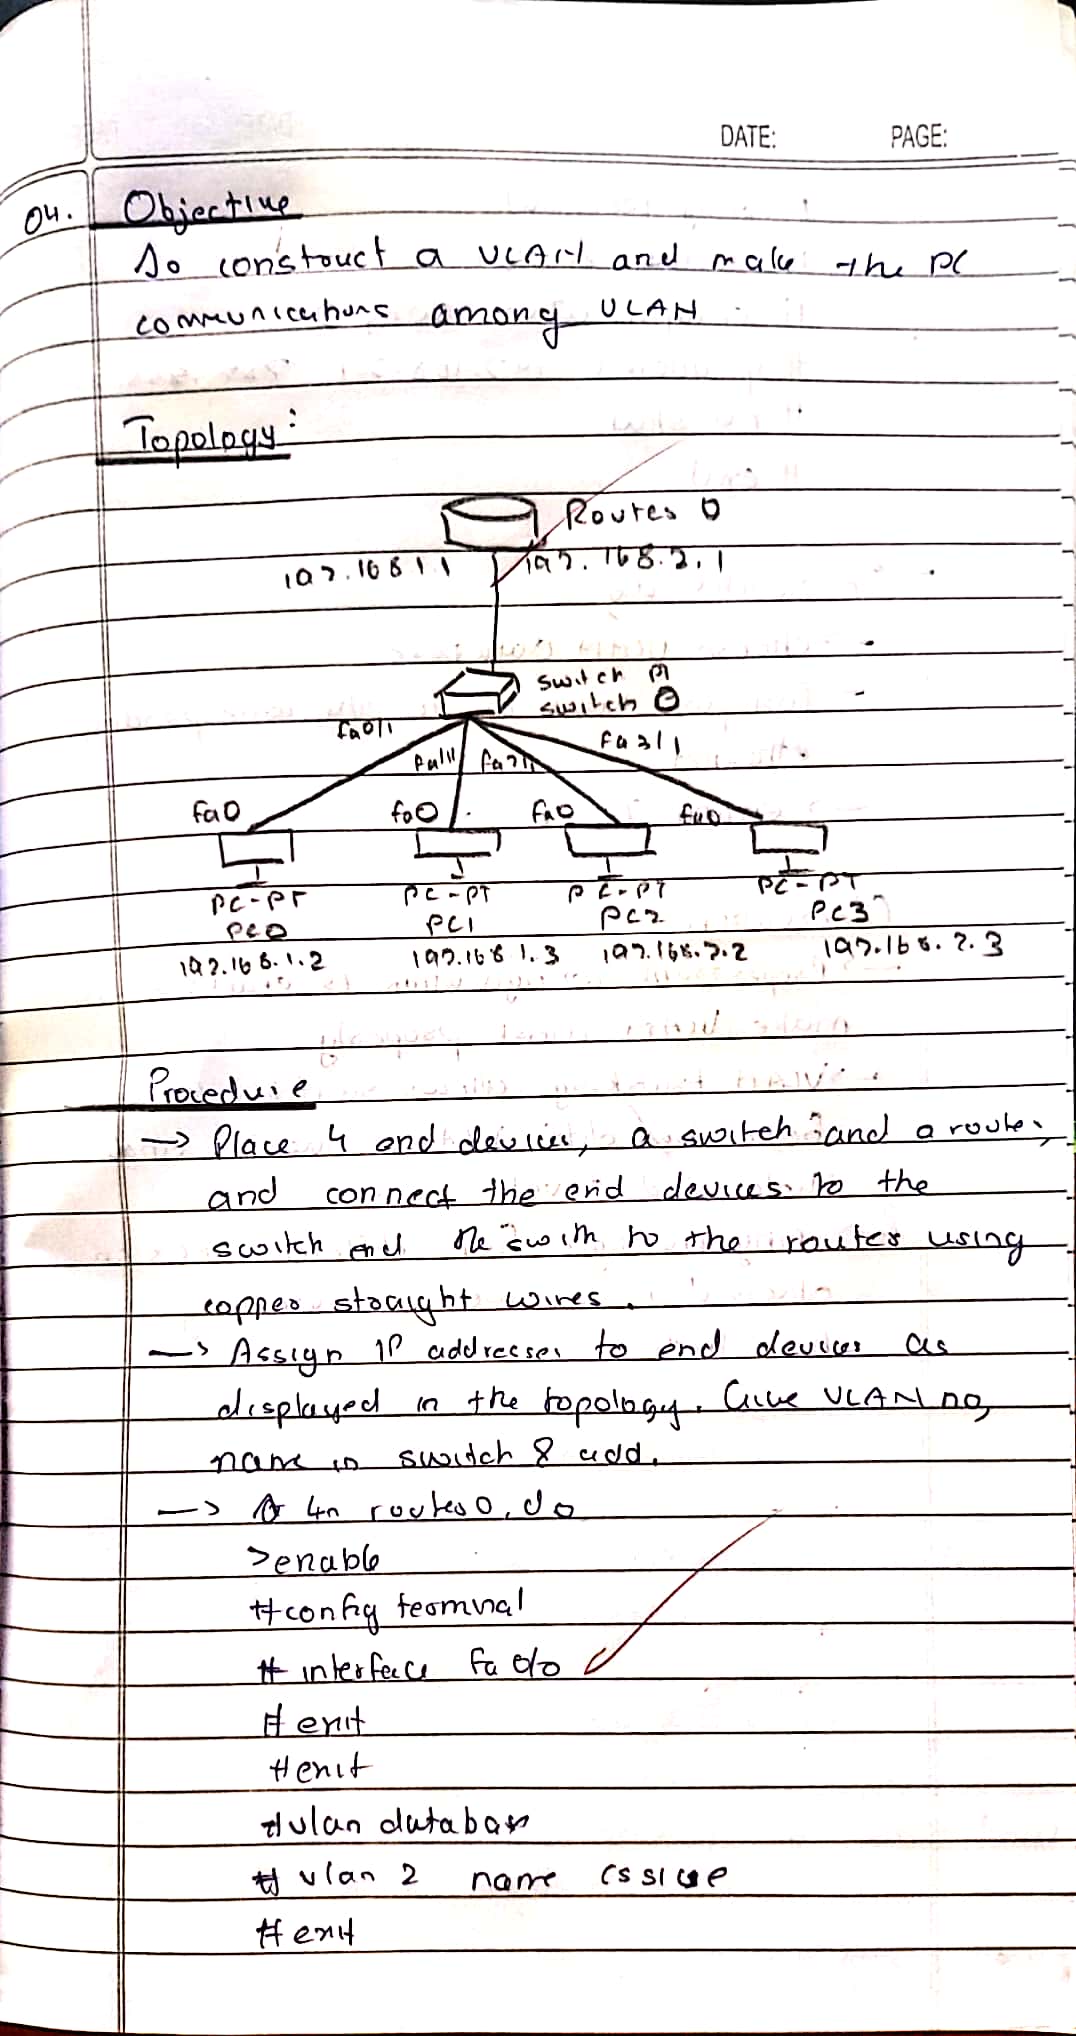 DATE: PAGE:
04. Objective
To construct a VLAN and make the PC
communications among VLAN
Topology:
Router 0
192.168 1.1 192.168.2.1
Switch PT
switch 0
fa0/1 fa1/1 fa2/1 fa3/1
fa0 fa0 fa0 fa0
PC-PT PC-PT PC-PT PC-PT
PC0 PC1 PC2 PC3
192.168.1.2 192.168 1.3 192.168.2.2 192.168.2.3
Procedure
→ Place 4 end devices, a switch and a router,
and connect the end devices to the
switch and the switch to the router using
copper straight wires.
→ Assign IP addresses to end devices as
displayed in the topology. Give VLAN no,
name in switch & add.
→ In router0, do
>enable
#config terminal
# interface fa 0/0
# exit
#exit
#vlan database
# vlan 2 name
# exit